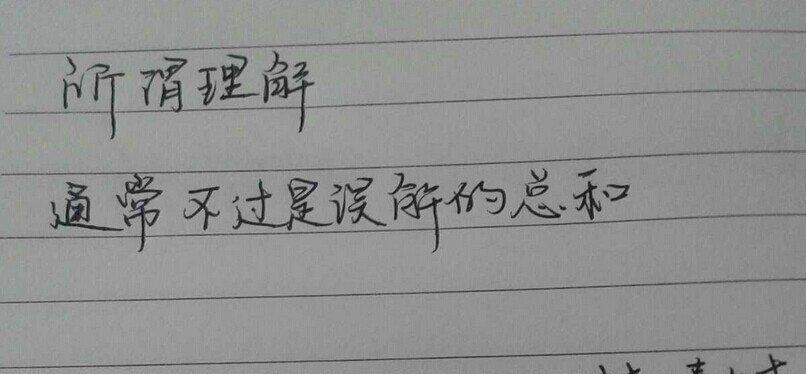 所谓理解
通常不过是误解的总和